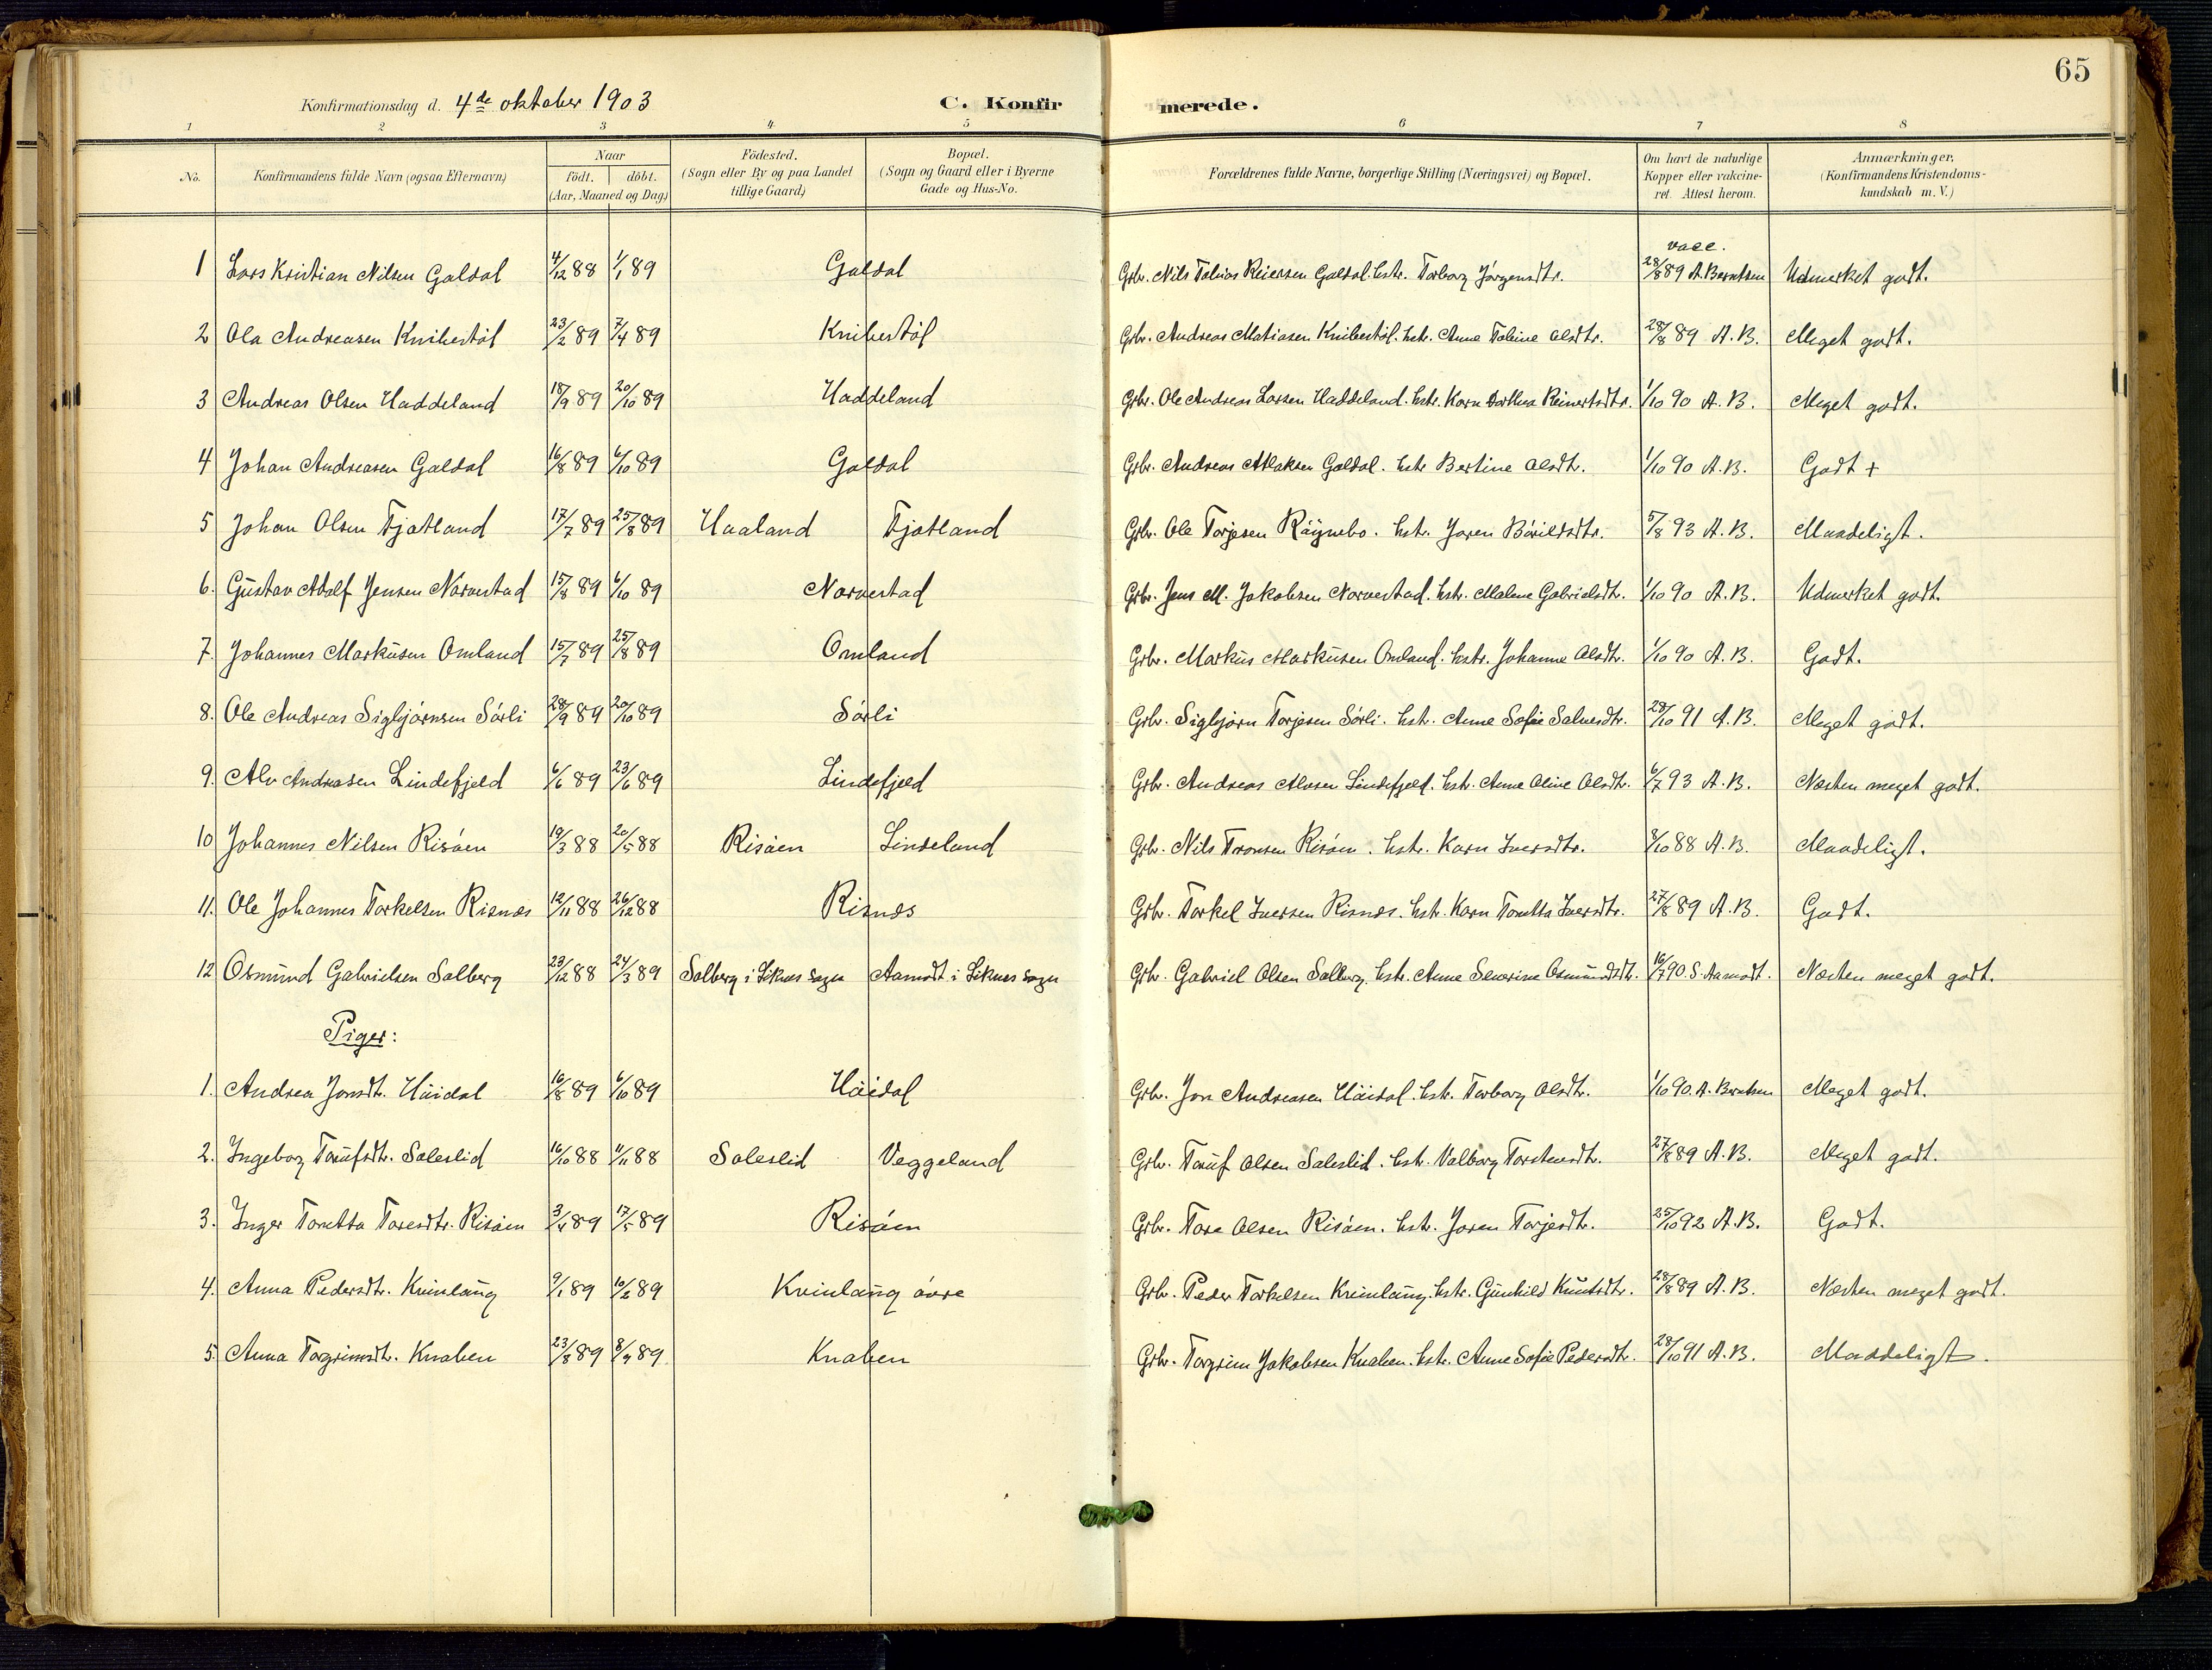 65
Konfirmationsdag d. 4de oktober 1903 C. Konfir merede.
1 2 3 4 5 6 7 8
No. Konfirmandens fulde Navn (ogsaa Efternavn) Naar födt. döbt. (Aar, Maaned og Dag) Födested. (Sogn eller By og paa Landet tillige Gaard) Bopæl. (Sogn og Gaard eller i Byerne Gade og Hus-No. Forældrenes fulde Navne, borgerlige Stilling (Næringsvei) og Bopæl. Om havt de naturlige Kopper eller vakcineret. Attest herom. Anmærkninger. (Konfirmandens Kristendomskundskab m. V.)
1 Lars Kristian Nilsen Galdal 4/12 88 1/1 89 Galdal Grbr. Nils Tobias Reiersen Galdal. hstr. Torborg Jörgensdtr. vacc. 28/8 89 A. Berntsen Udmerket godt.
2 Ola Andreasen Knibestöl 23/2 89 7/4 89 Knibestöl Grbr. Andreas Matiasen Knibestöl. hstr. Anne Tobine Olsdtr. 28/8 89 A. B. Meget godt.
3 Andreas Olsen Haddeland 18/9 89 20/10 89 Haddeland Grbr. Ole Andreas Larsen Haddeland. hstr. Karn Dorthea Reinertsdtr. 1/10 90 A. B. Meget godt.
4 Johan Andreasen Galdal 16/8 89 6/10 89 Galdal Grbr. Andreas Atlaksen Galdal. hstr Bertine Olsdtr. 1/10 90 A. B. Godt +
5 Johan Olsen Fjotland 17/7 89 25/8 89 Haaland Fjotland Grbr. Ole Torjesen Röynebo. hstr. Joren Börildsdtr. 5/8 93 A. B. Maadeligt.
6. Gustav Adolf Jensen Narvestad 15/8 89 6/10 89 Narvestad Grbr. Jens M. Jakobsen Narvestad. hstr. Malene Gabrielsdtr. 1/10 90 A. B. Udmerket godt.
7. Johannes Markusen Omland 15/7 89 25/8 89 Omland Grbr. Markus Markusen Omland. hstr. Johanne Olsdtr. 1/10 90 A. B. Godt.
8. Ole Andreas Sigbjörnsen Sörli 28/9 89 20/10 89 Sörli Grbr. Sigbjörn Torjesen Sörli. hstr. Anne Sofie Salvesdtr. 28/10 91 A. B. Meget godt.
9. Alv Andreasen Lindefjeld 6/6 89 23/6 89 Lindefjeld Grbr. Andreas Alvsen Lindefjeld. hstr. Anne Oline Olsdtr. 6/7 93 A. B. Næsten meget godt.
10 Johannes Nilsen Risöen 19/3 88 20/5 88 Risöen Lindeland Grbr. Nils Tronsen Risöen. hstr. Karn Iversdtr. 8/10 88 A. B. Maadeligt.
11. Ole Johannes Torkelsen Risnes 12/11 88 26/12 88 Risnes Grbr. Torkel Iversen Risnes. hstr. Karn Tonetta Iversdtr. 27/8 89 A. B. Godt.
12 Osmund Gabrielsen Salberg 23/12 88 24/3 89 Salberg i Liknes sogn Aamodt i Liknes sogn Grbr. Gabriel Olsen Salberg. hstr. Anne Severine Osmundsdtr. 16/7 90. S. Aamodt. Næsten meget godt.
Piger:
1. Andrea Jonsdt. Höidal 16/8 89 6/10 89 Höidal Grbr. Jon Andreasen Höidal. hstr. Torborg Olsdtr. 1/10 90. A. Berntsen Meget godt.
2. Ingeborg Torufsdtr. Soleslid 16/10 88 11/11 88 Soleslid Veggeland Grbr. Toruf Olsen Soleslid. hstr. Valborg Torstensdtr. 27/8 89 A. B. Meget godt.
3. Inger Tonetta Toresdtr. Risöen 3/4 89 17/5 89 Risöen Grbr. Tore Olsen Risöen. hstr. Joren Torjesdtr. 25/10 92 A. B. Godt.
4. Anna Pedersdtr. Kvinlaug 9/1 89 10/2 89 Kvinlaug övre Grbr. Peder Torkelsen Kvinlaug. hstr. Gunhild Knutsdtr. 28/8 89 A. B. Næsten meget godt.
5. Anna Torgrimsdtr. Knaben 23/8 89 8/9 89 Knaben Grbr. Torgrim Jakobsen Knaben. hstr. Anne Sofie Pedersdtr. 28/10 91 A. B. Maadeligt.